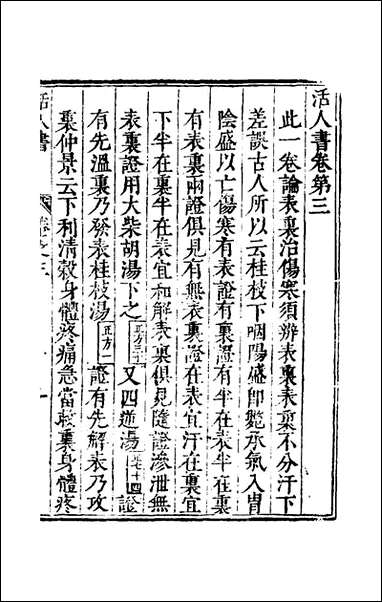 活人書卷第三
此一卷論表裏治傷寒須辨表裏表裏不分汗下
差誤古人所以云桂枝下咽陽盛即斃承氣入胃
陰盛以亡傷寒有表證有裏證有半在表半在裏
有表裏兩證俱見有無表裏證在表宜汗在裏宜
下半在裏半在表宜和解表裏俱見隨證滲泄無
表裏證用大柴胡湯下之正方三十又四逆湯卷十四證
有先溫裏乃發表桂枝湯正方一證有先解表乃攻
裏仲景云下利清穀身體疼痛急當救裏身體疼
活人書
卷之三